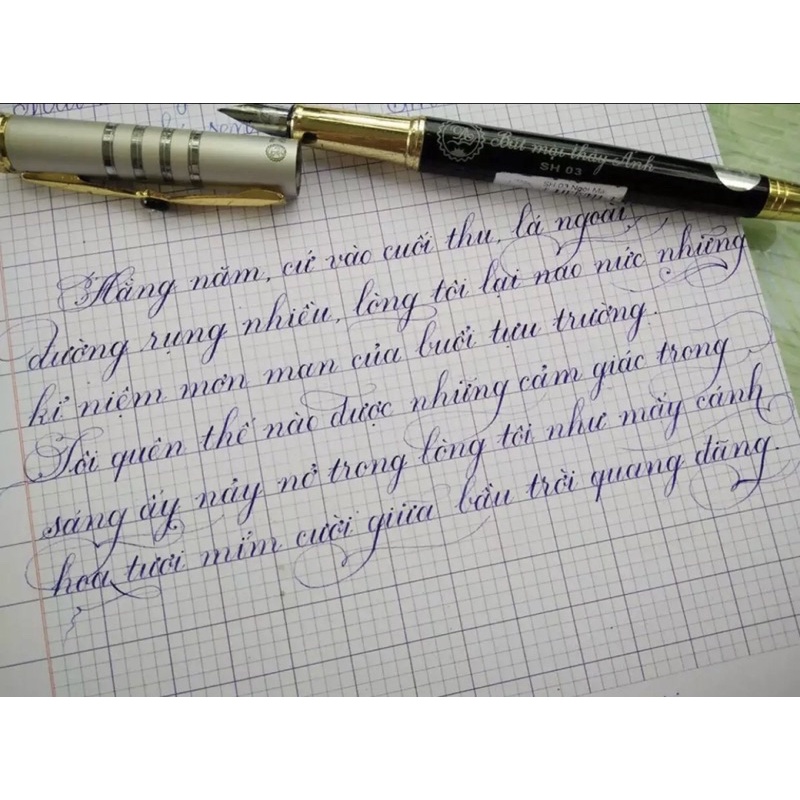 Bút mài thầy Ánh
SH 03
Hằng năm, cứ vào cuối thu, lá ngoài
đường rụng nhiều, lòng tôi lại náo nức những
kỉ niệm mơn man của buổi tựu trường.
Tôi quên thế nào được những cảm giác trong
sáng ấy nảy nở trong lòng tôi như mấy cánh
hoa tươi mỉm cười giữa bầu trời quang đãng.